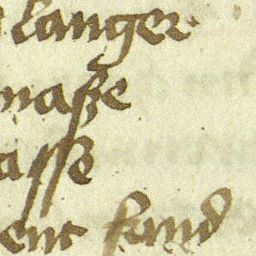 langer
maße
asse
ent fand